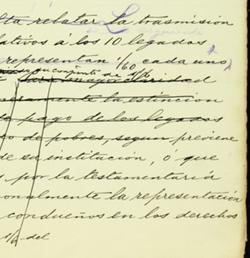 lta rebatar la trasmisión
lativos á los 10 legados
representan 1/60 cada uno
en conjunto de 1/6
para mayor claridad
la estincion
pago de los legados
de pobres, segun previene
de su institución, o que
por la testamentaría
onalmente la representación
condueños en los derechos
1/6 del